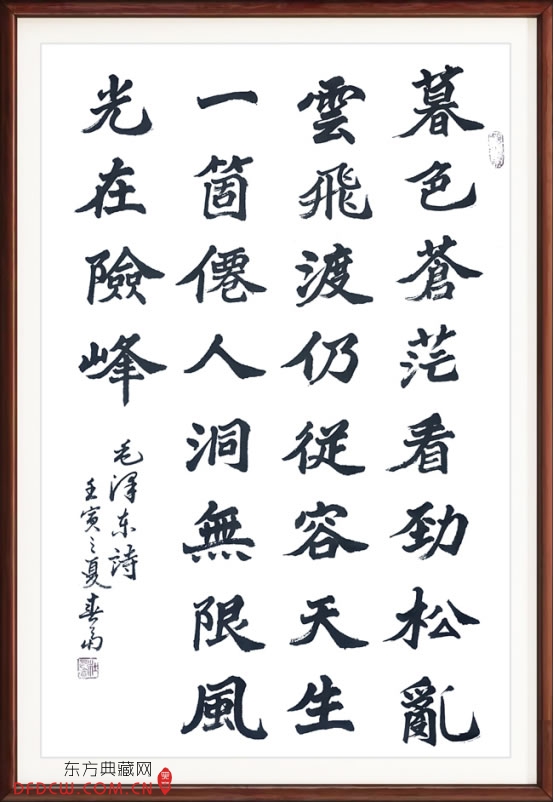 暮色蒼茫看勁松亂
雲飛渡仍從容天生
一箇僊人洞無限風
光在險峰
毛泽东詩
壬寅之夏春扇
东方典藏网
DFDCW.COM.CN